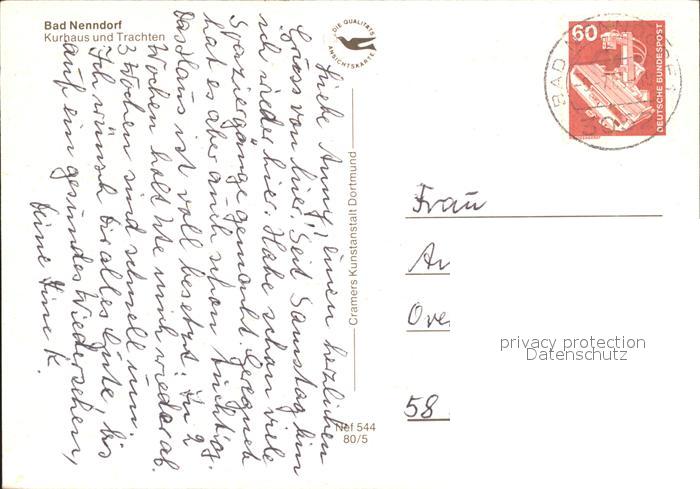 Bad Nenndorf
Kurhaus und Trachten
DIE QUALITÄTS
ANSICHTSKARTE
Liebe Anny! Einen herzlichen
Gruss von hier. Seit Samstag bin
ich wieder hier. Habe schon viele
Spaziergänge gemacht. Geregnet
hat es aber auch schon tüchtig.
Das Haus ist voll besetzt. In 2
Wochen holt Ute mich wieder ab.
3 Wochen sind schnell um.
Ich wünsch Dir alles Gute, bis
auf ein gesundes Wiedersehen,
Deine Tine K.
Cramers Kunstanstalt Dortmund
Nef 544
80/5
60
DEUTSCHE BUNDESPOST
BAD
Frau
An
Ove
58
privacy protection
Datenschutz